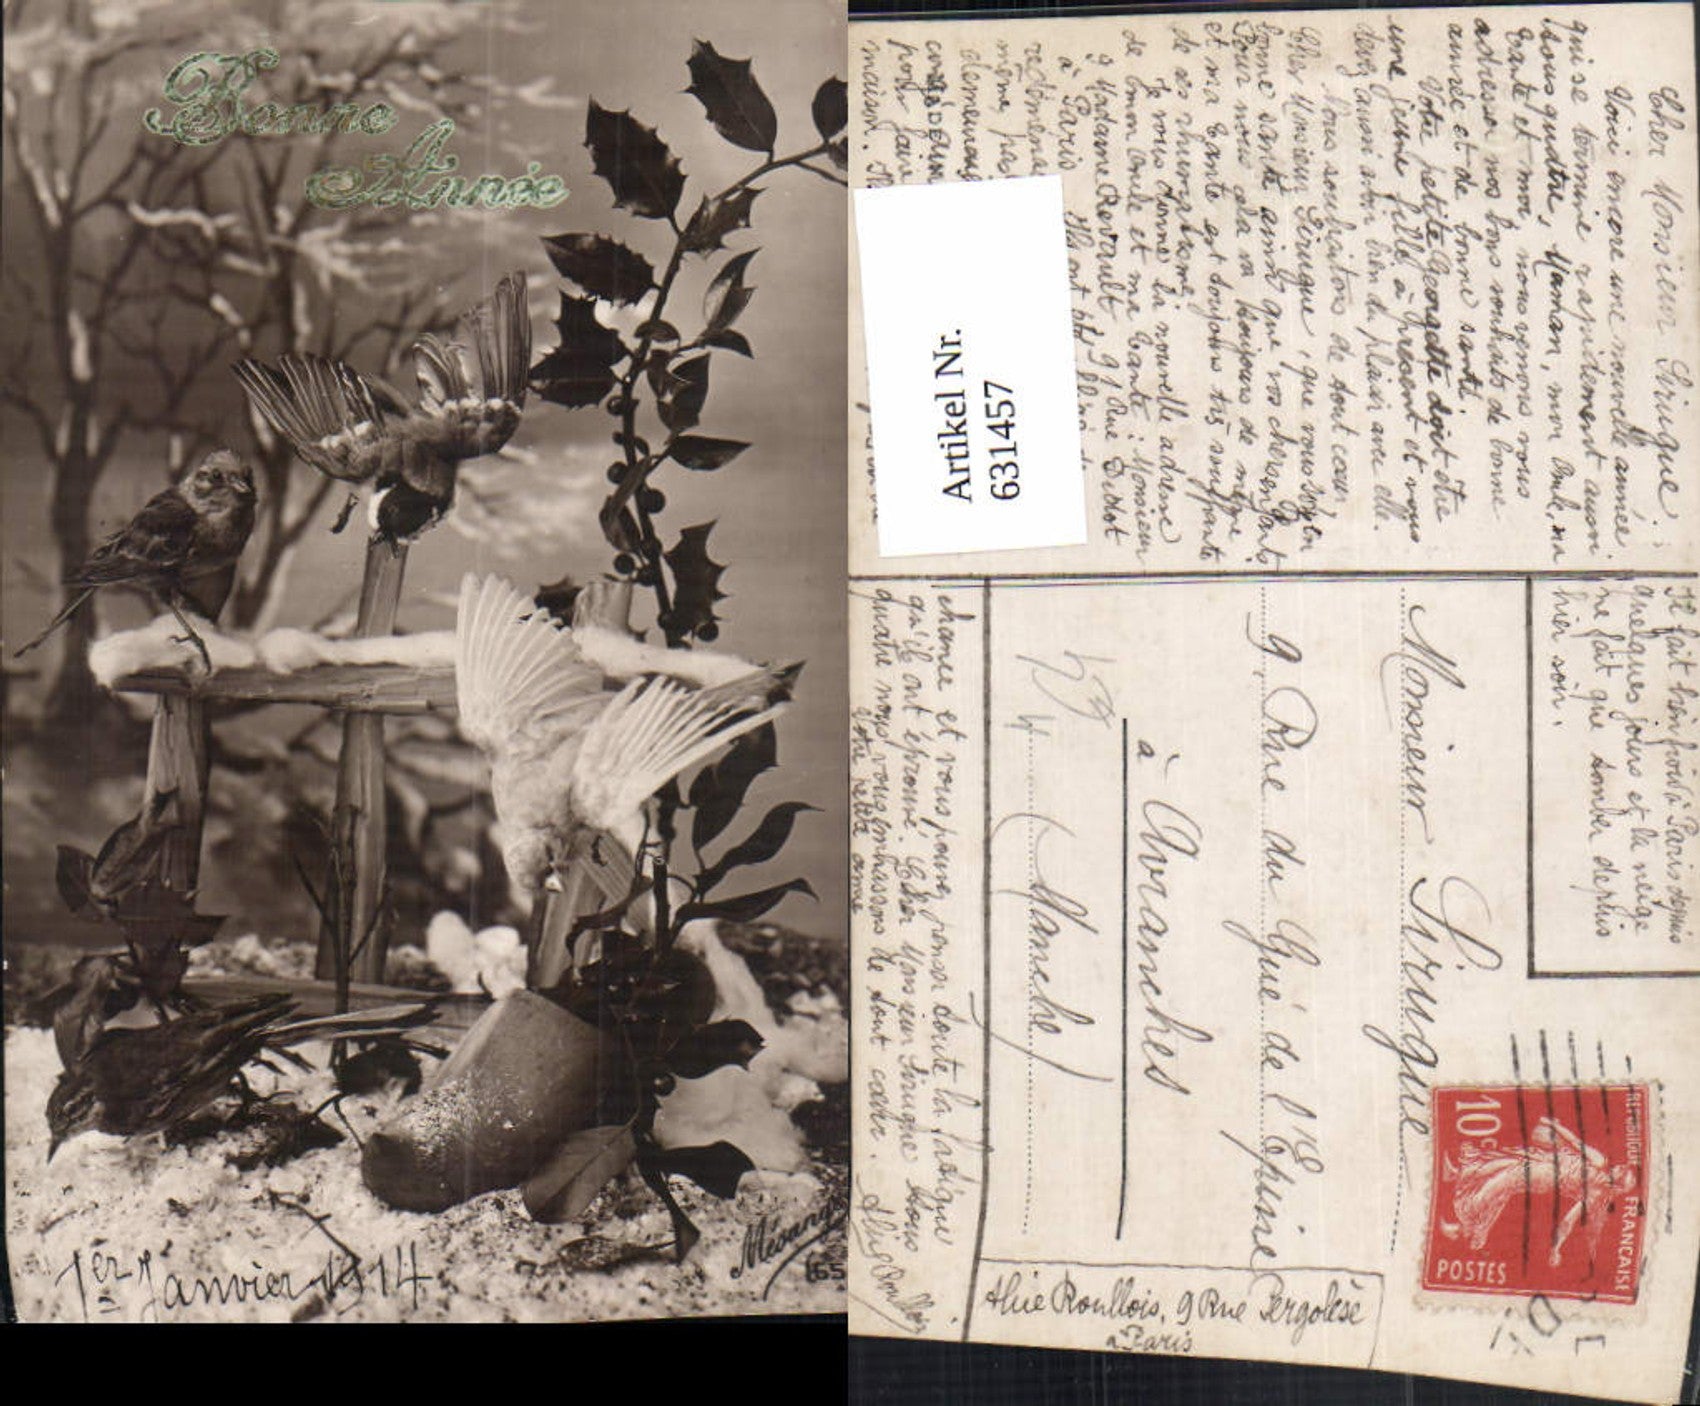 Bonne
Année
1er Janvier 1914
Mésange
Cher Monsieur Sirugue,
Voici encore une nouvelle année
qui se termine rapidement aussi
tous quatre, Maman, mon Oncle, ma
tante et moi nous venons vous
adresser nos bons souhaits de bonne
année et de bonne santé.
Votre petite Georgette doit être
une jeune fille à présent et vous
devez aussi avoir bien du plaisir avec elle.
Nous souhaitons de tout cœur,
Cher Monsieur Sirugue, que vous soyez en
bonne santé ainsi que vos chers enfants
Pour nous cela va toujours de même
et ma tante est toujours très souffrante
de ses rhumatismes.
Je vous donne la nouvelle adresse
de mon oncle et ma tante : Monsieur
& Madame Renault 91 Rue Didot
à Paris
même pas
maison.
Artikel Nr.
6314457
Il fait bien froid à Paris depuis
quelques jours et la neige
ne fait que tomber depuis
hier soir.
Monsieur S. Sirugue
9, Rue du Gué de l'Epine
à Avranches
(Manche)
chance et vous pouvez penser toute la fatigue
qu'ils ont éprouvé. Cher Monsieur Sirugue nous
quatre nous vous embrassons de tout cœur.
Votre petite amie
Alice Roullois, 9 Rue Pergolèse
à Paris
REPUBLIQUE FRANÇAISE
10c
POSTES